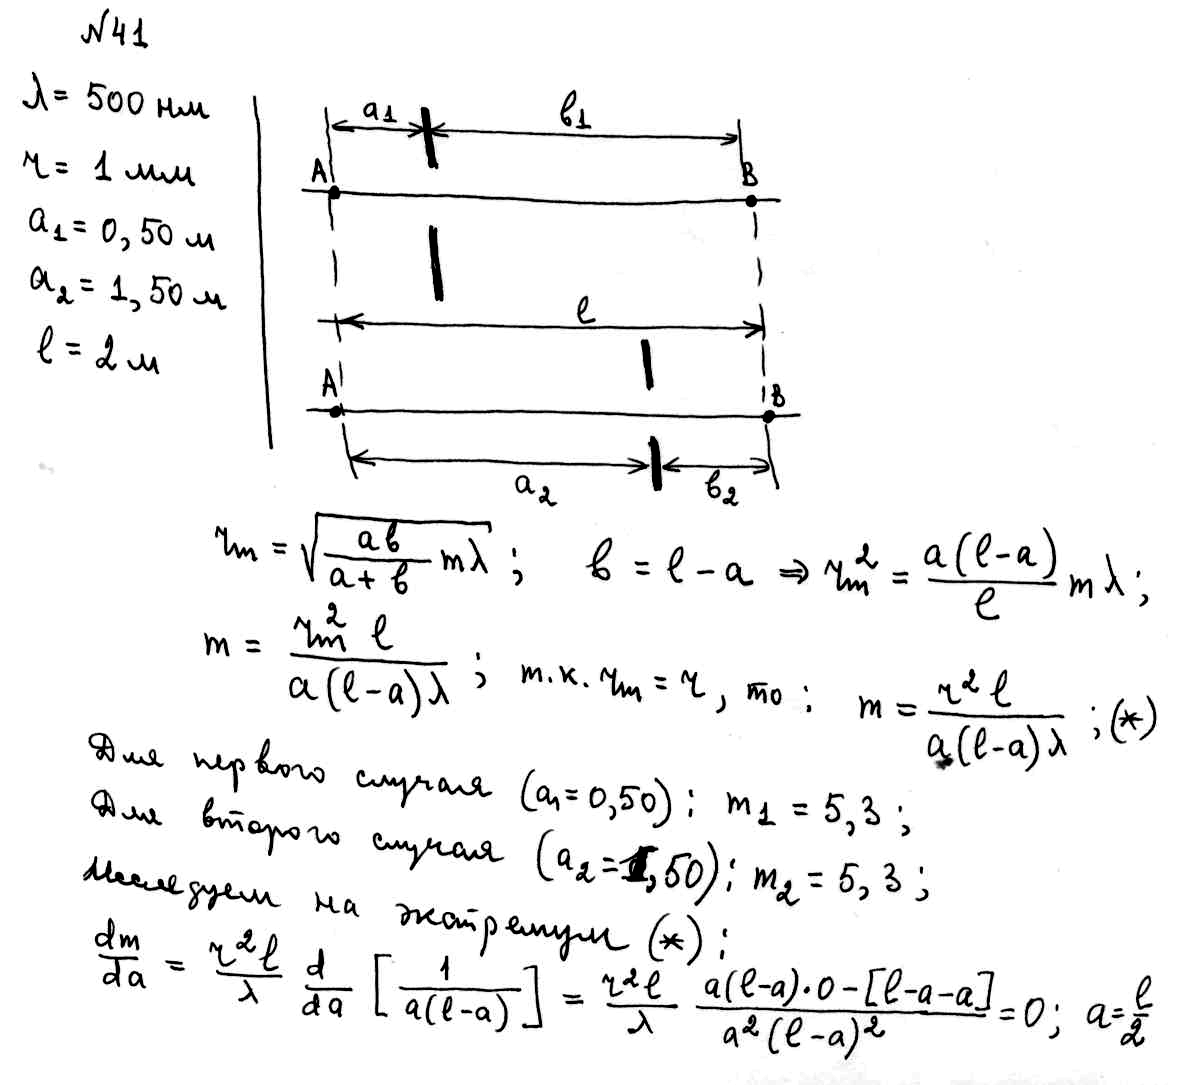 №41
λ = 500 нм
r = 1 мм
a₁ = 0,50 м
a₂ = 1,50 м
l = 2 м
a₁ b₁
A B
l
A B
a₂ b₂
rₘ = √(ab/(a+b) mλ) ; b = l – a ⇒ rₘ² = a(l–a)/l mλ ;
m = rₘ² l/(a(l–a)λ) ; т.к. rₘ = r, то : m = r² l/(a(l–a)λ) ; (*)
Для первого случая (a₁=0,50) : m₁ = 5,3 ;
Для второго случая (a₂=1,50) : m₂ = 5,3 ;
Исследуем на экстремум (*) :
dm/da = r²l/λ d/da [1/(a(l–a))] = r²l/λ (a(l–a)·0–[l–a–a])/(a²(l–a)²) = 0 ; a = l/2